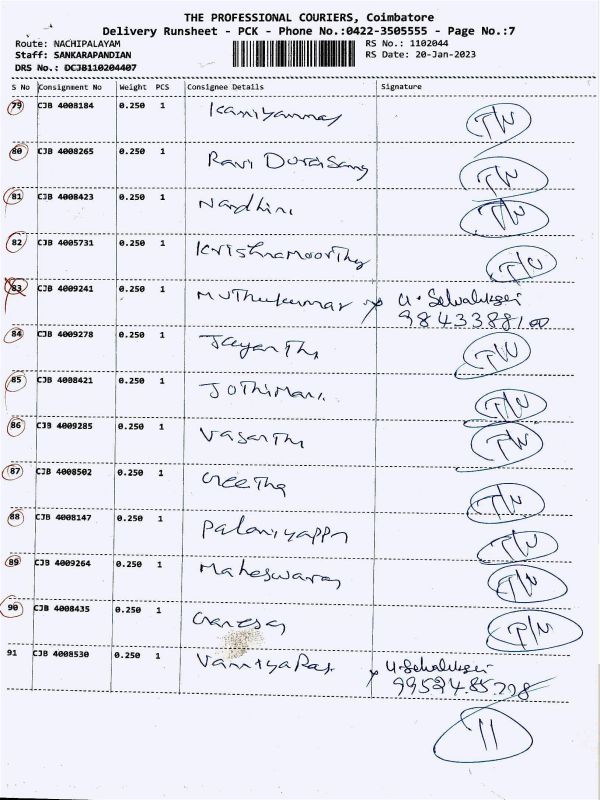 THE PROFESSIONAL COURIERS, Coimbatore
Delivery Runsheet - PCK - Phone No.:0422-3505555 - Page No.:7
Route: NACHIPALAYAM RS No.: 1102044
Staff: SANKARAPANDIAN RS Date: 20-Jan-2023
DRS No.: DCJB110204407
S No Consignment No Weight PCS Consignee Details Signature
79 CJB 4008184 0.250 1 Kaniyammay T/N
80 CJB 4008265 0.250 1 Ravi Duraisamy T/N
81 CJB 4008423 0.250 1 Nandhini T/N
82 CJB 4005731 0.250 1 Krishnamoorthy T/N
83 CJB 4009241 0.250 1 Muthukumar
9843388100
84 CJB 4009278 0.250 1 Jayanthi T/N
85 CJB 4008421 0.250 1 Jothimani T/N
86 CJB 4009285 0.250 1 Vasanthi T/N
87 CJB 4008502 0.250 1 Geetha T/N
88 CJB 4008147 0.250 1 Palaniyappn T/N
89 CJB 4009264 0.250 1 Maheswaran T/N
90 CJB 4008435 0.250 1 Ganesan T/N
91 CJB 4008530 0.250 1 Vaniya Raj
9952485228
11